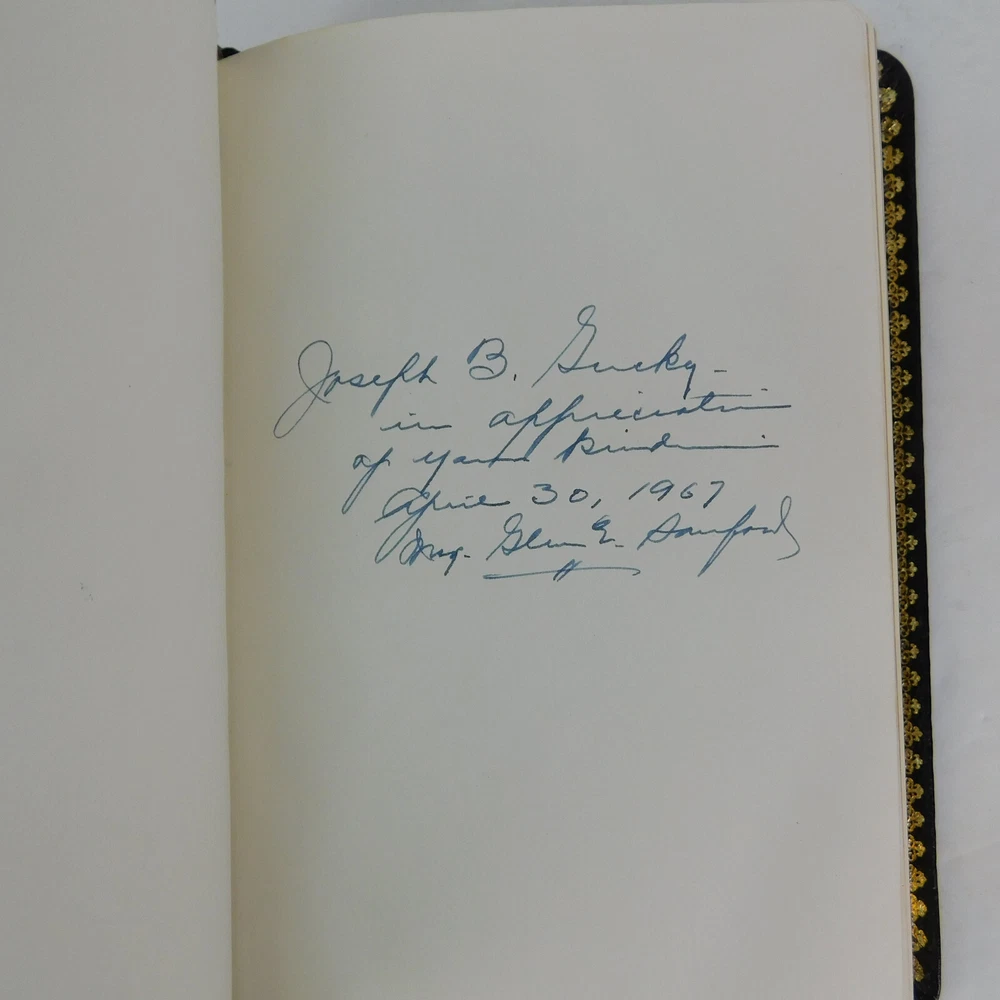 Joseph B. Gucky -
in appreciation
of your kindness
April 30, 1967
Mrs. Glenn E. Sanford